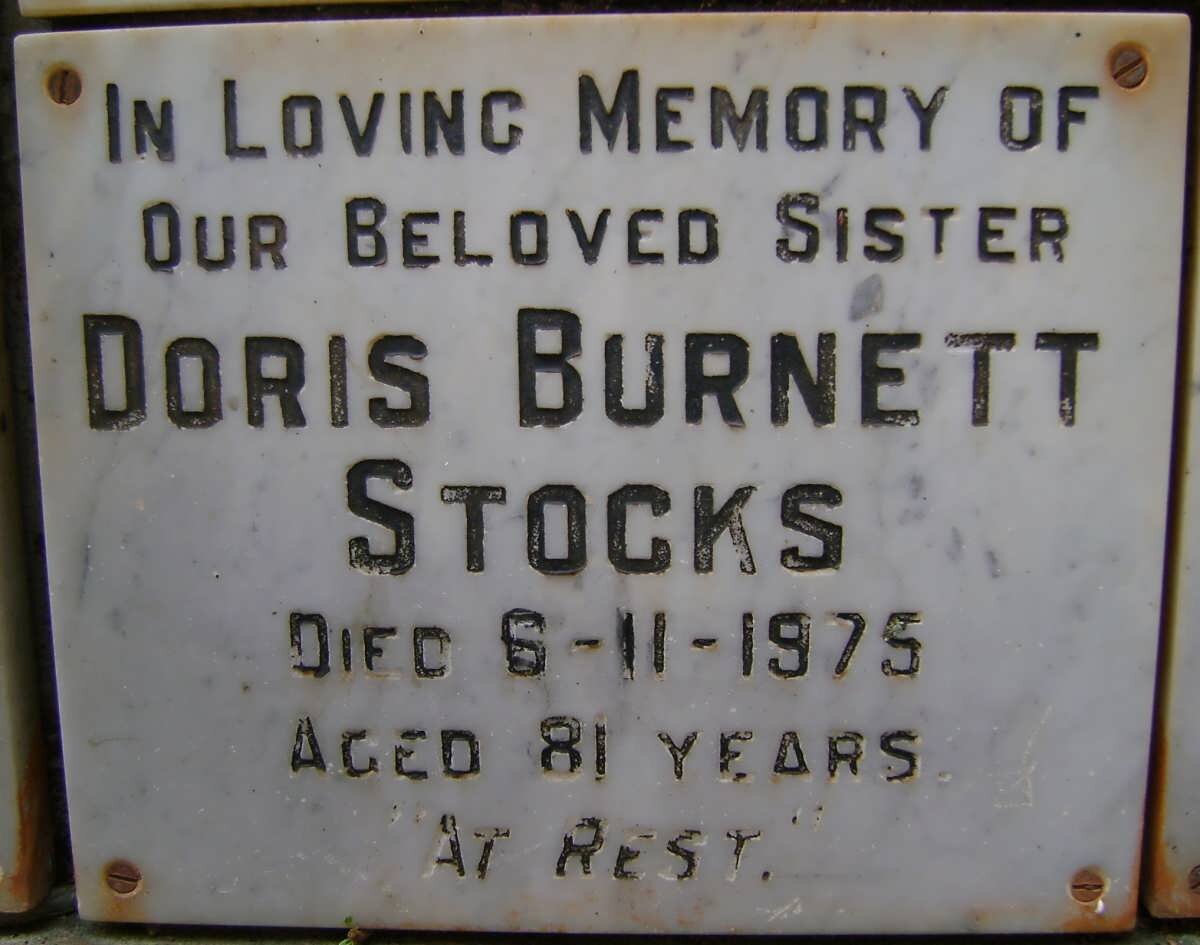 IN LOVING MEMORY OF
OUR BELOVED SISTER
DORIS BURNETT
STOCKS
DIED 6-11-1975
AGED 81 YEARS.
"AT REST."